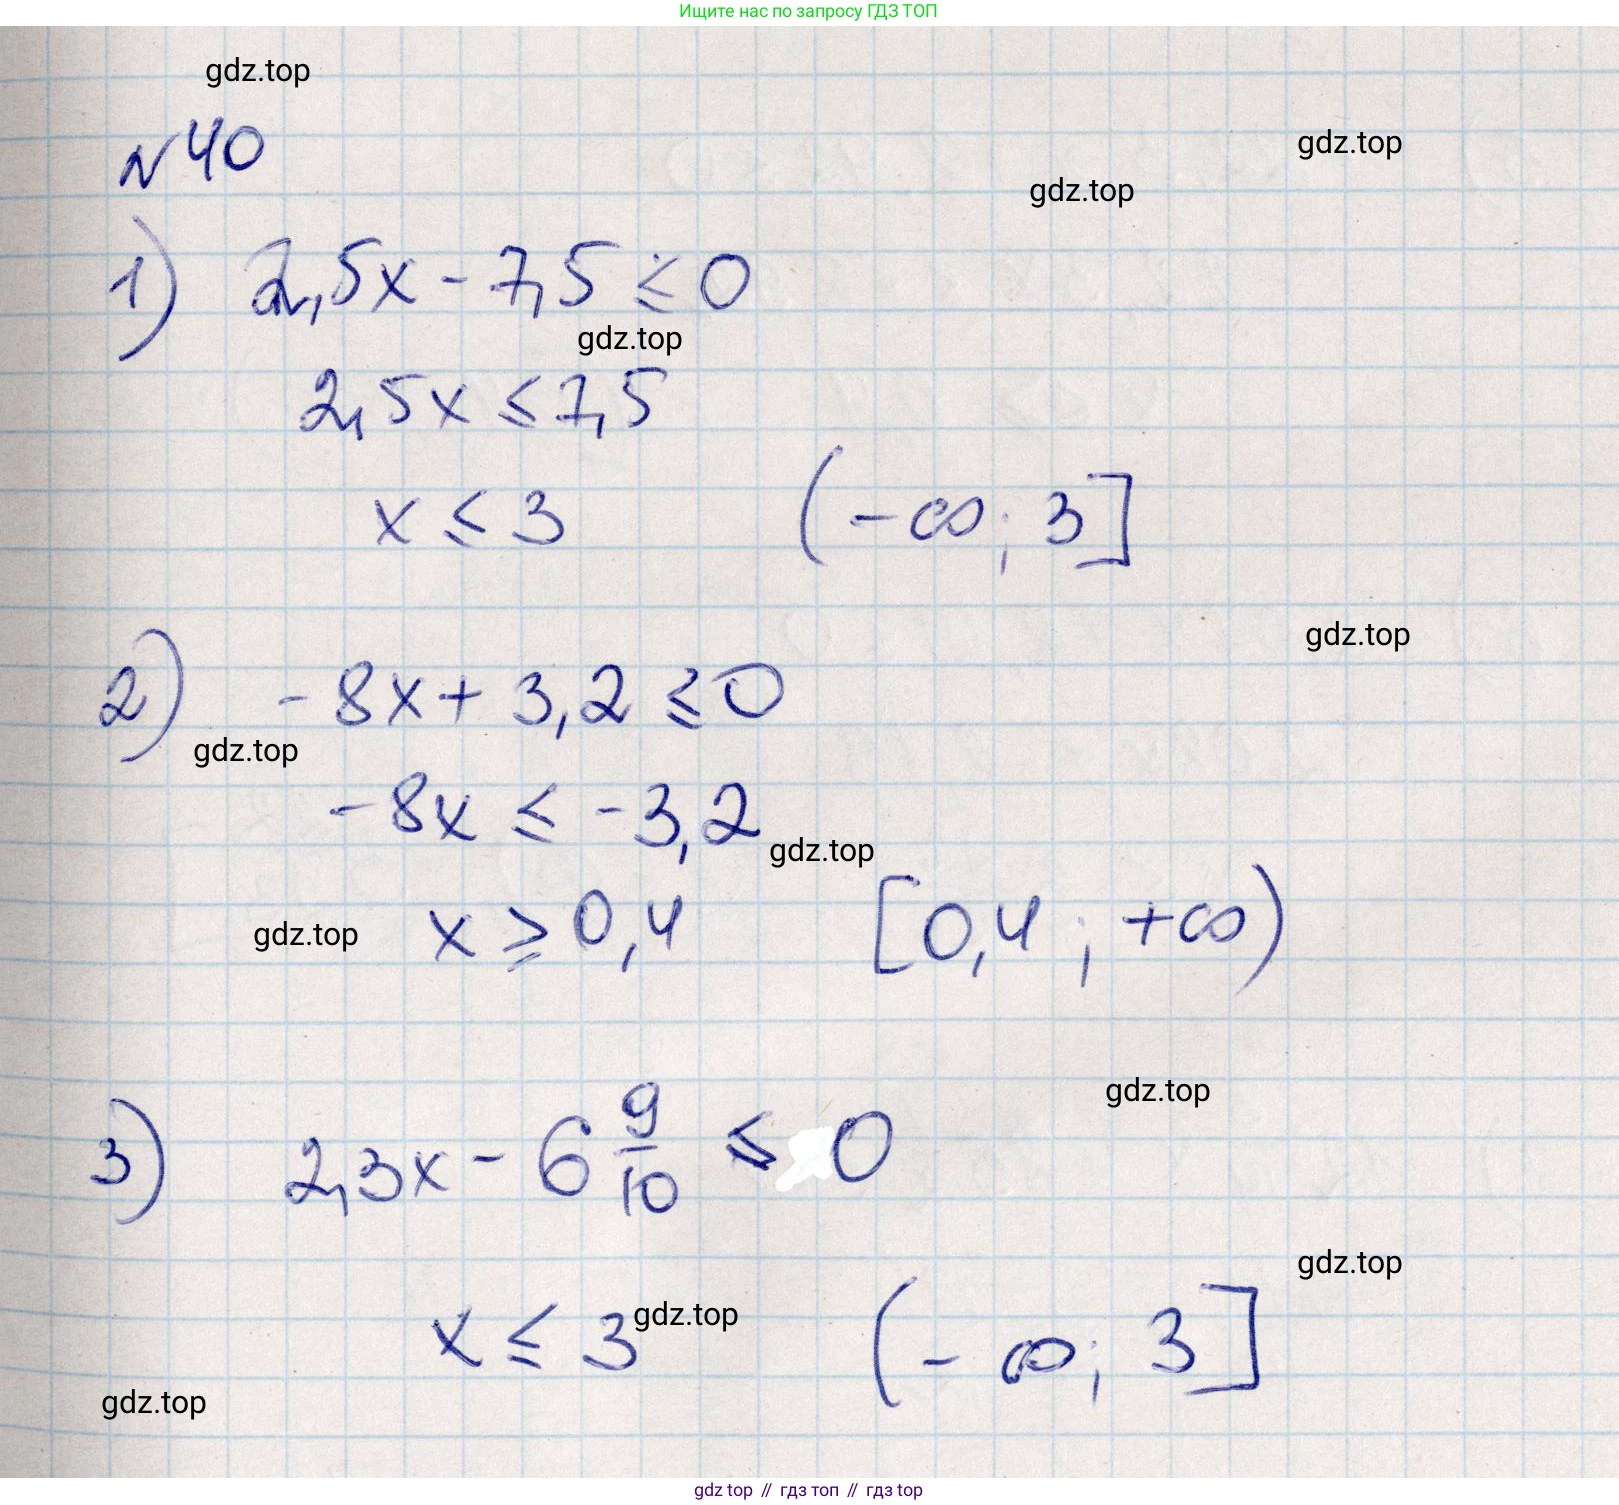 Ищите нас по запросу ГДЗ ТОП
gdz.top
№40
gdz.top
gdz.top
1) 2,5x - 7,5 ≤ 0
gdz.top
2,5x ≤ 7,5
x ≤ 3 (-∞; 3]
gdz.top
2) -8x + 3,2 ≤ 0
gdz.top
-8x ≤ -3,2
gdz.top
gdz.top
x ≥ 0,4 [0,4; +∞)
gdz.top
3) 2,3x - 6 9/10 ≤ 0
gdz.top
x ≤ 3 (-∞; 3]
gdz.top
gdz.top
gdz top // гдз топ // гдз top